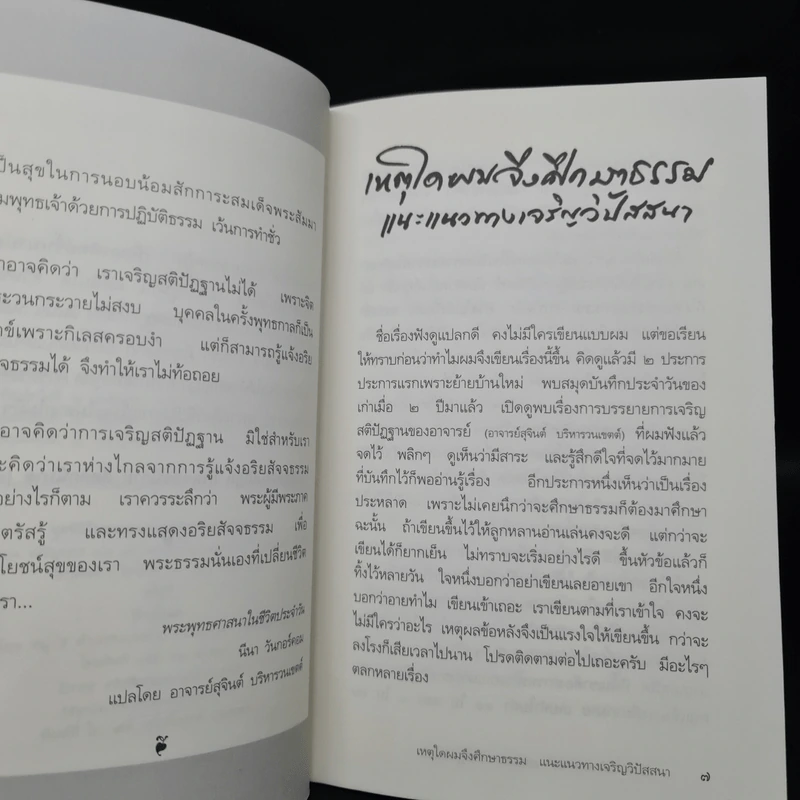 เป็นสุขในการนอบน้อมสักการะสมเด็จพระสัมมา
มพุทธเจ้าด้วยการปฏิบัติธรรม เว้นการทำชั่ว
าอาจคิดว่า เราเจริญสติปัฏฐานไม่ได้ เพราะจิต
ระวนกระวายไม่สงบ บุคคลในครั้งพุทธกาลก็เป็น
ข์เพราะกิเลสครอบงำ แต่ก็สามารถรู้แจ้งอริย
จธรรมได้ จึงทำให้เราไม่ท้อถอย
อาจคิดว่าการเจริญสติปัฏฐาน มิใช่สำหรับเรา
ะคิดว่าเราห่างไกลจากการรู้แจ้งอริยสัจจธรรม
อย่างไรก็ตาม เราควรระลึกว่า พระผู้มีพระภาค
ตรัสรู้ และทรงแสดงอริยสัจจธรรม เพื่อ
โยชน์สุขของเรา พระธรรมนั่นเองที่เปลี่ยนชีวิต
รา...
พระพุทธศาสนาในชีวิตประจำวัน
นีนา วันกอร์คอม
แปลโดย อาจารย์สุจินต์ บริหารวนเขตต์
เหตุใดผมจึงศึกษาธรรม
แนะแนวทางเจริญวิปัสสนา
ชื่อเรื่องฟังดูแปลกดี คงไม่มีใครเขียนแบบผม แต่ขอเรียน
ให้ทราบก่อนว่าทำไมผมจึงเขียนเรื่องนี้ขึ้น คิดดูแล้วมี ๒ ประการ
ประการแรกเพราะย้ายบ้านใหม่ พบสมุดบันทึกประจำวันของ
เก่าเมื่อ ๒ ปีมาแล้ว เปิดดูพบเรื่องการบรรยายการเจริญ
สติปัฏฐานของอาจารย์ (อาจารย์สุจินต์ บริหารวนเขตต์) ที่ผมฟังแล้ว
จดไว้ พลิกๆ ดูเห็นว่ามีสาระ และรู้สึกดีใจที่จดไว้มากมาย
ที่บันทึกไว้ก็พออ่านรู้เรื่อง อีกประการหนึ่งเห็นว่าเป็นเรื่อง
ประหลาด เพราะไม่เคยนึกว่าจะศึกษาธรรมก็ต้องมาศึกษา
ฉะนั้น ถ้าเขียนขึ้นไว้ให้ลูกหลานอ่านเล่นคงจะดี แต่กว่าจะ
เขียนได้ก็ยากเย็น ไม่ทราบจะเริ่มอย่างไรดี ขึ้นหัวข้อแล้วก็
ทิ้งไว้หลายวัน ใจหนึ่งบอกว่าอย่าเขียนเลยอายเขา อีกใจหนึ่ง
บอกว่าอายทำไม เขียนเข้าเถอะ เราเขียนตามที่เราเข้าใจ คงจะ
ไม่มีใครว่าอะไร เหตุผลข้อหลังจึงเป็นแรงใจให้เขียนขึ้น กว่าจะ
ลงโรงก็เสียเวลาไปนาน โปรดติดตามต่อไปเถอะครับ มีอะไรๆ
ตลกหลายเรื่อง
เหตุใดผมจึงศึกษาธรรม แนะแนวทางเจริญวิปัสสนา ๗